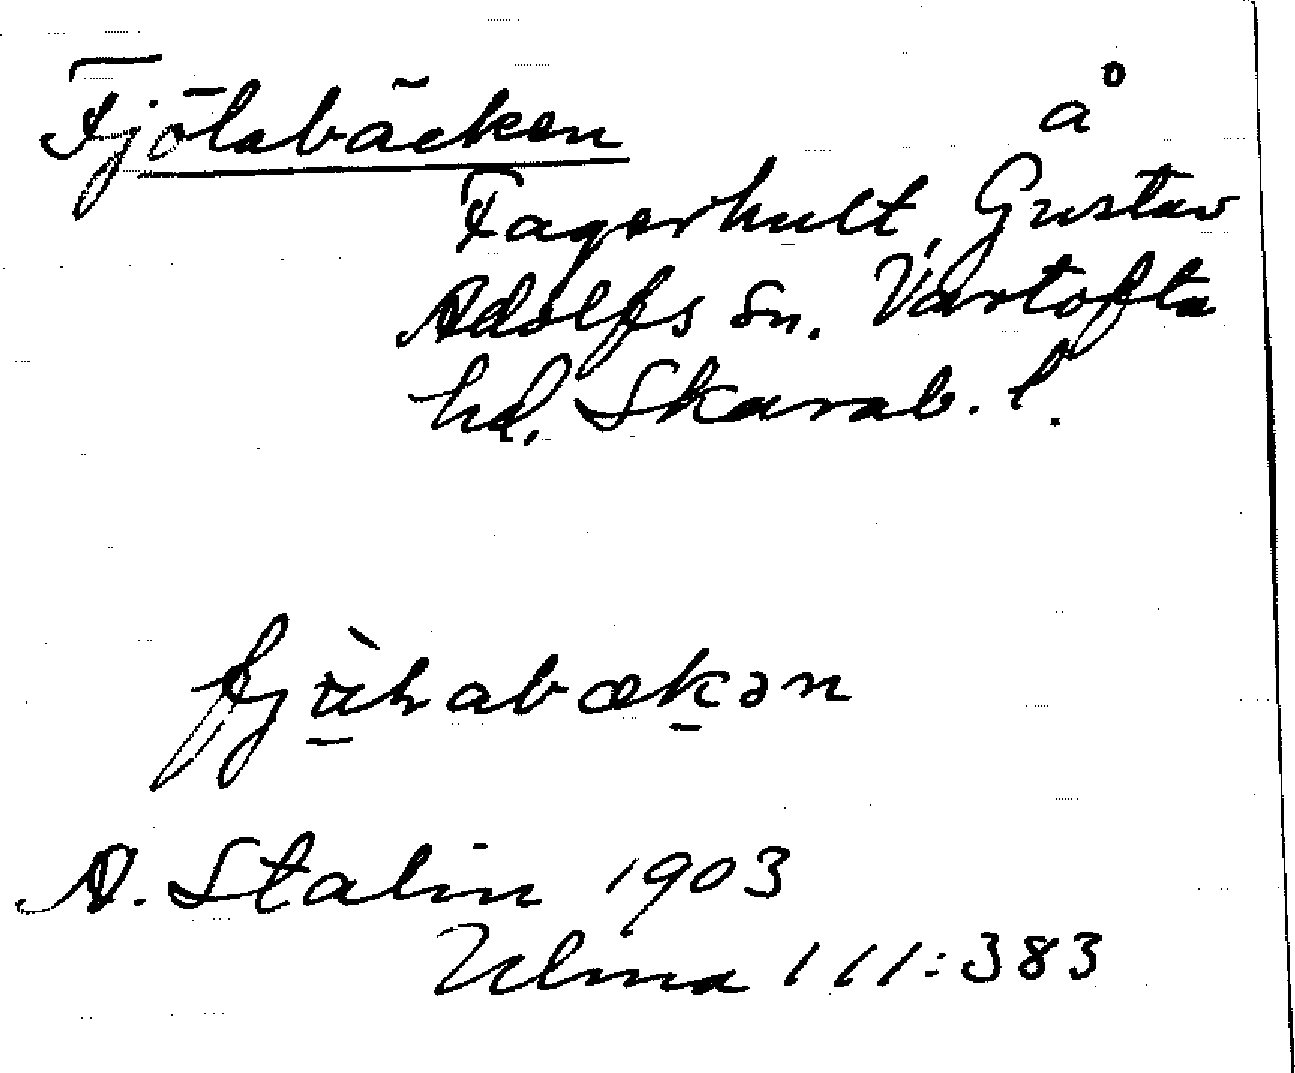 Fjölabäcken
å
Fagerhult, Gustav
Adolfs sn. Vartofta
hd. Skarab. l.
A. Stalin 1903
Ulma 111:383